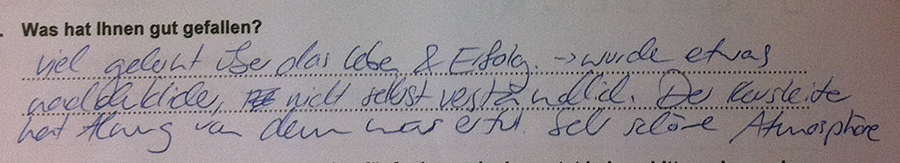 Was hat Ihnen gut gefallen?
Viel gelernt über das Leben & Erfolg. → wurde etwas
nachdenklicher, nicht selbstverständlich. Der Kursleiter
hat Ahnung von dem was er tut. Sehr schöne Atmosphäre